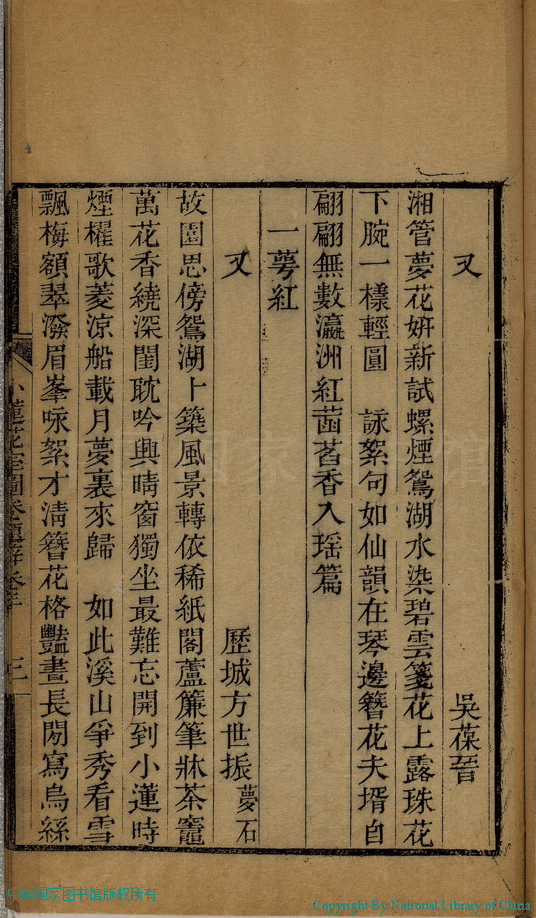 又
吳葆晉
湘管夢花妍新試螺煙鴛湖水染碧雲箋花上露珠花
下腕一樣輕圓　詠絮句如仙韻在琴邊簪花夫壻自
翩翩無數瀛洲紅菡萏香入瑶篇
一萼紅
又
歷城方世振夢石
故園思傍鴛湖卜築風景轉依稀紙閣蘆簾筆牀茶竈
萬花香繞深閨耽吟興晴窗獨坐最難忘開到小蓮時
煙櫂歌菱涼船載月夢裏來歸　如此溪山爭秀看雪
飄梅額翠潑眉峯咏絮才淸簪花格豔晝長閒寫烏絲
小蓮花室圖卷題辭卷下
三
中國国家图书馆版权所有
Copyright By National Library of China